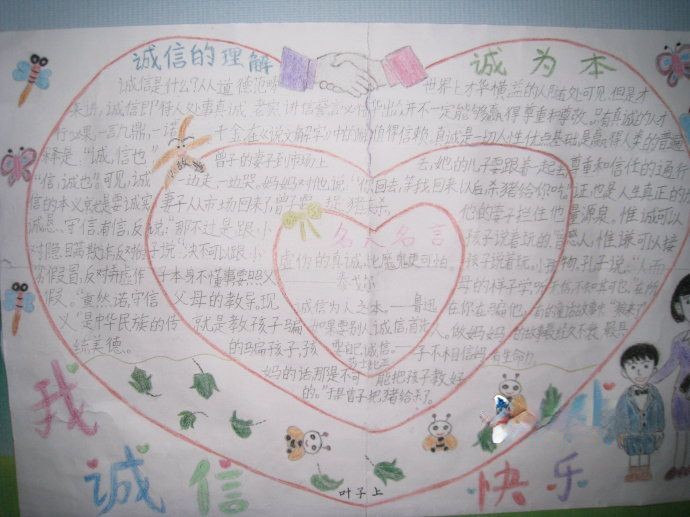 诚信的理解
诚信是什么?从道德范畴
来讲,诚信即待人处事真诚、老实、讲信誉,言必信
行必果,一言九鼎,一诺千金。在《说文解字》中的
释是:“诚,信也”,
“信,诚也”。可见,诚
信的本义就是要诚实、
诚恳、守信、有信,反
对隐瞒欺诈、反对
假冒,反对弄虚作
假。
”是中华民族的传
统美德。
诚为本
世界上才华横溢的人随处可见,但是才
出众并不一定能够赢得尊重和尊敬。只有真诚的人才
值得信赖,真诚是一切人性优点基础,是赢得人类的普遍
尊重和信任的通行
证,也是人生真正的
力量源泉。惟诚可以
惟谦可以接
孔子说:“人而
无信,不知其可也
曾子的妻子到市场上
去,她的儿子要跟着一起去
一边走,一边哭。妈妈对他说:“你回去,等我回来以后,杀猪给你吃。”
妻子从市场回来了,曾子要捉猪去杀,
他的妻子拦住他
说:“那不过是跟小
孩子说着玩的。”
曾子说:“决不可以跟小
孩子说着玩。小孩
子本身不懂事,要照父
母的样子学,听
父母的教导。现
在你在骗他,
就是教孩子骗
人。做妈妈
的骗孩子,孩
子不相信妈
妈的话,那是不可能把孩子教好
的。”于是曾子把猪给杀了。
名人名言
虚伪的真诚,比魔鬼更可怕。
——泰戈尔
诚信为人之本。——鲁迅
如果要别人诚信,首先
要自己诚信。——莎士比亚
我
诚信
快乐
叶子上